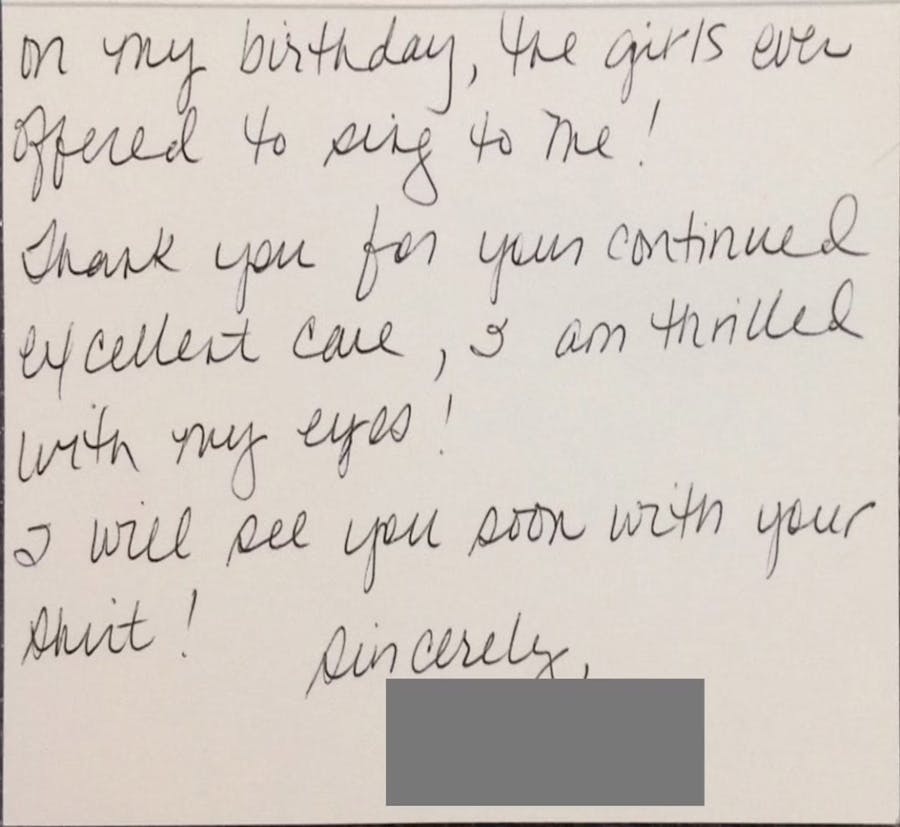 on my birthday, the girls even
offered to sing to me!
Thank you for your continued
excellent care, I am thrilled
with my eyes!
I will see you soon with your
shirt!
Sincerely,